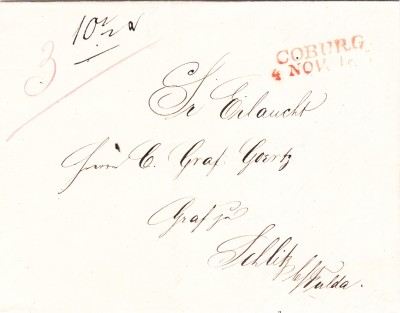 10 1/2
3
COBURG
4 NOV.
Sr Erlaucht
Herrn C. Graf. Goertz
Graf zu
Schlitz
b/Fulda.